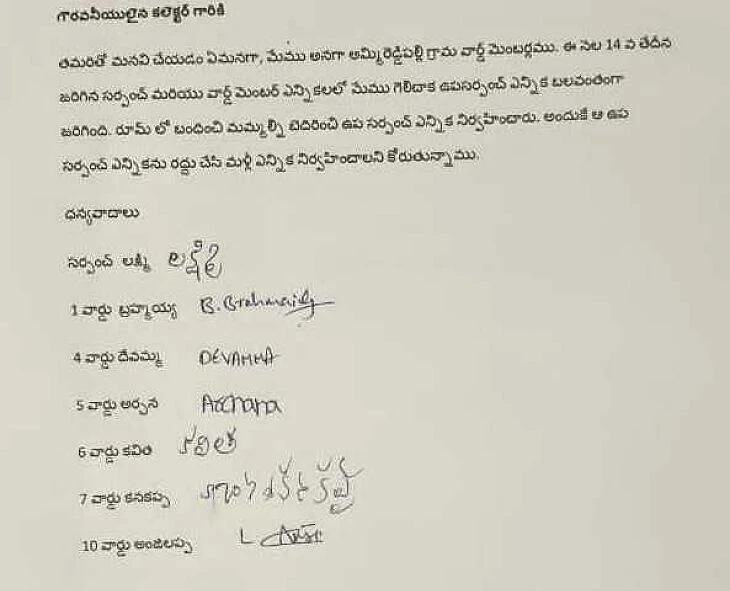 గౌరవనీయులైన కలెక్టర్ గారికి
తమరితో మనవి చేయడం ఏమనగా, మేము అనగా అమ్మిరెడ్డిపల్లి గ్రామ వార్డ్ మెంబర్లము. ఈ నెల 14 వ తేదీన
జరిగిన సర్పంచ్ మరియు వార్డ్ మెంబర్ ఎన్నికలలో మేము గెలిచాక ఉపసర్పంచ్ ఎన్నిక బలవంతంగా
జరిగింది. రూమ్ లో బంధించి మమ్మల్ని బెదిరించి ఉప సర్పంచ్ ఎన్నిక నిర్వహించారు. అందుకే ఆ ఉప
సర్పంచ్ ఎన్నికను రద్దు చేసి మళ్లీ ఎన్నిక నిర్వహించాలని కోరుతున్నాము.
ధన్యవాదాలు
సర్పంచ్ లక్ష్మి లక్ష్మి
1 వార్డు బ్రహ్మయ్య B. Brahmaiah
4 వార్డు దేవమ్మ DEVAMMA
5 వార్డు అర్చన Archana
6 వార్డు కవిత కవిత
7 వార్డు కనకప్ప
10 వార్డు అంజిలప్ప L